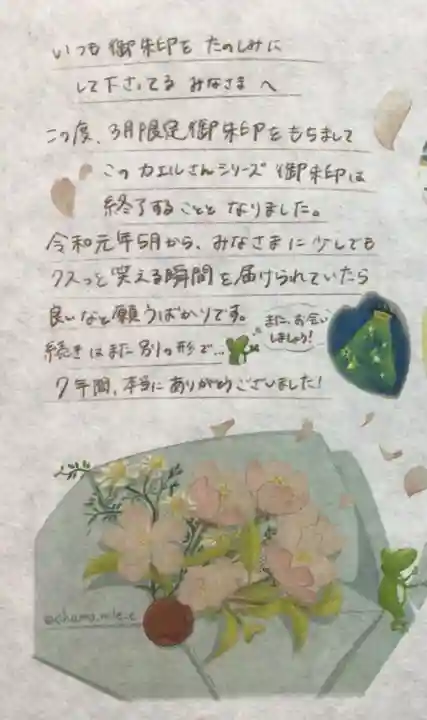 いつも御朱印をたのしみに
して下さってるみなさまへ
この度、3月限定御朱印をもちまして
このカエルさんシリーズ御朱印は
終了することとなりました。
令和元年5月から、みなさまに少しでも
クスっと笑える瞬間を届けられていたら
良いなと願うばかりです。
続きはまた別の形で…
また、お会い
しましょう!
7年間、本当にありがとうございました!
@chamo.mile.c